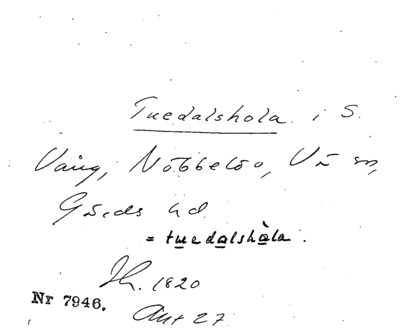 Tuedalshola i S.
Vång, Nöbbelöv, V:a sn,
Gärds hd
= tuedalshàla.
Jh. 1820
Nr 7946.
Aut 27